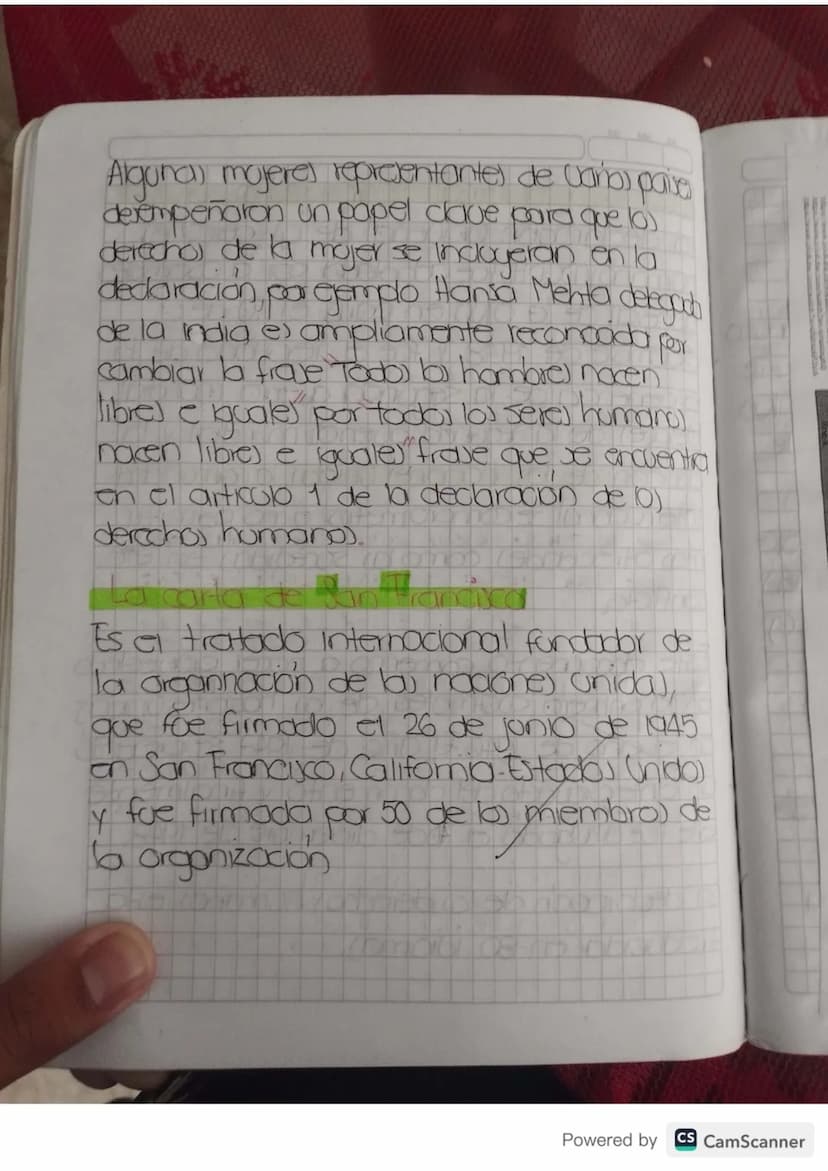 Algunas mujeres representantes de varios paises
desempeñaron un papel clave para que los
derechos de la mujer se incluyeran en la
declaración, por ejemplo Hansa Mehta delegada
de la india es ampliamente reconocida por
cambiar la frase "Todos los hombres nacen
libres e iguales" por "todos los seres humanos
nacen libres e iguales" frase que se encuentra
en el articulo 1 de la declaración de los
derechos humanos.
La carta de San Francisco
Es el tratado internacional fundador de
la organnación de las naciones unidas,
que fue firmado el 26 de junio de 1945
en San Francisco, California-Estados Unidos
y fue firmada por 50 de los miembros de
la organización
Powered by CS CamScanner